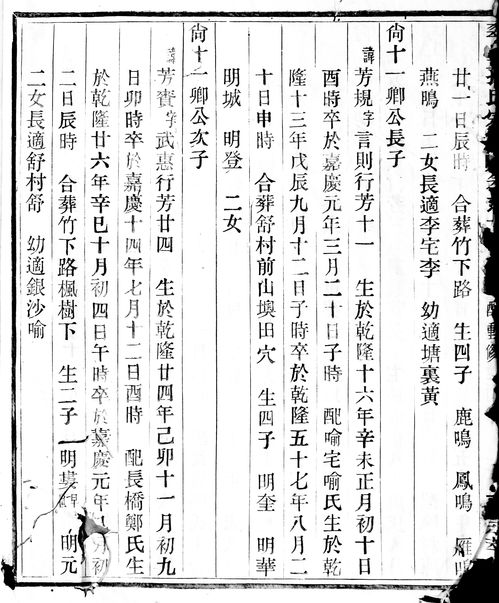 廿一日辰時 合葬竹下路 生四子 鹿鳴 鳳鳴 雁
燕鳴 二女長適李宅李 幼適塘裏黃
尙十一卿公長子
諱芳規字言則行芳十一 生於乾隆十六年辛未正月初十日
酉時卒於嘉慶元年三月二十日子時 配喻宅喻氏生於乾
隆十三年戊辰九月十二日子時卒於乾隆五十七年八月二
十日申時 合葬舒村前山塽田穴 生四子 明奎 明華
明城 明登 二女
尙十一卿公次子
諱芳賚字武惠行芳廿四 生於乾隆廿四年己卯十一月初九
日卯時卒於嘉慶十四年七月十二日酉時 配長橋鄭氏生
於乾隆廿六年辛巳十月初四日午時卒於嘉慶元年 月初
二日辰時 合葬竹下路楓樹下 生二子 明 明元
二女長適舒村舒 幼適銀沙喻